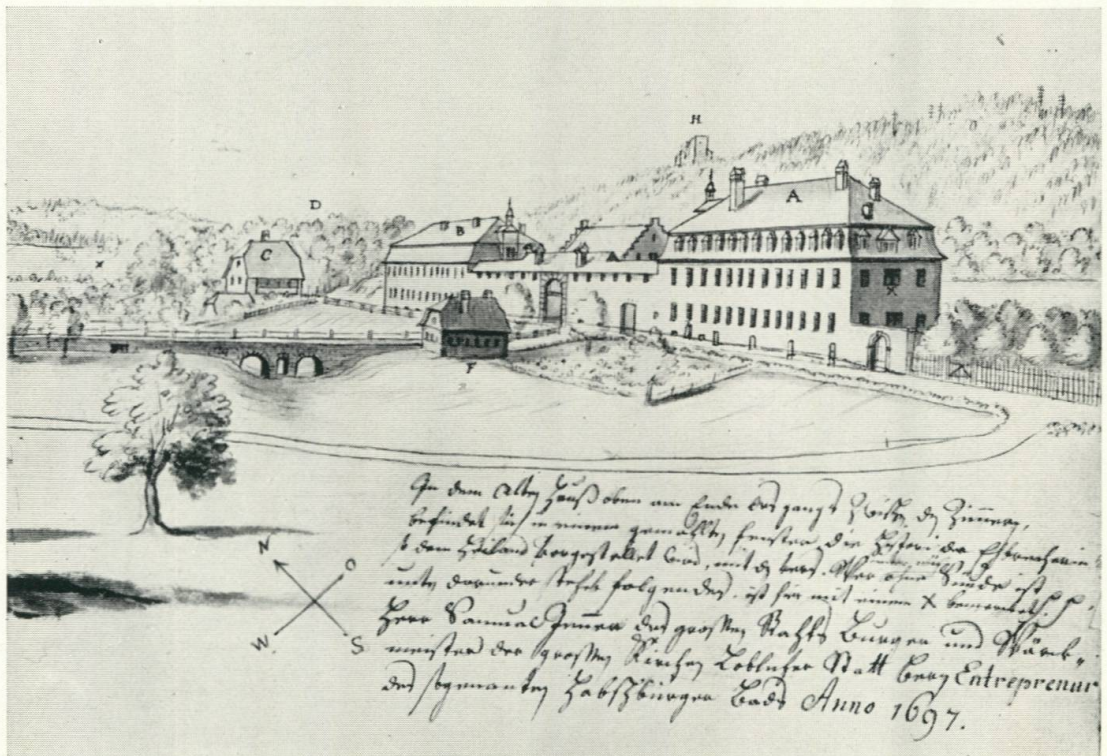 H.
D
A
B
C
F
N
O
W.
S
In dem alten Hauß oben am Ende des gangs Zwüschen den Zimmern,
befindet sich in einem gemahlten fenster, die Histori der Ehbrecherin
so dem Heiland vorgestellet wird, mit dem vers. Wer ohne Sünde ist
unten darunder stehet folgendes. ist hie mit einem X bemerckt.
Herr Samuel Jenner des grossen Rahts Burger und Wärck-
meister der grossen Kirchen Loblicher Statt Bern Entreprenur
des sogenanten Habspurger Bads Anno 1697.